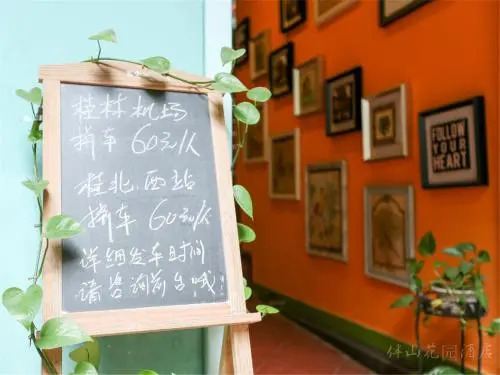 桂林机场
拼车 60元/人
桂北.西站
拼车 60元/人
详细发车时间
请咨询前台哦!
FOLLOW
YOUR
HEART
伴山花园酒店